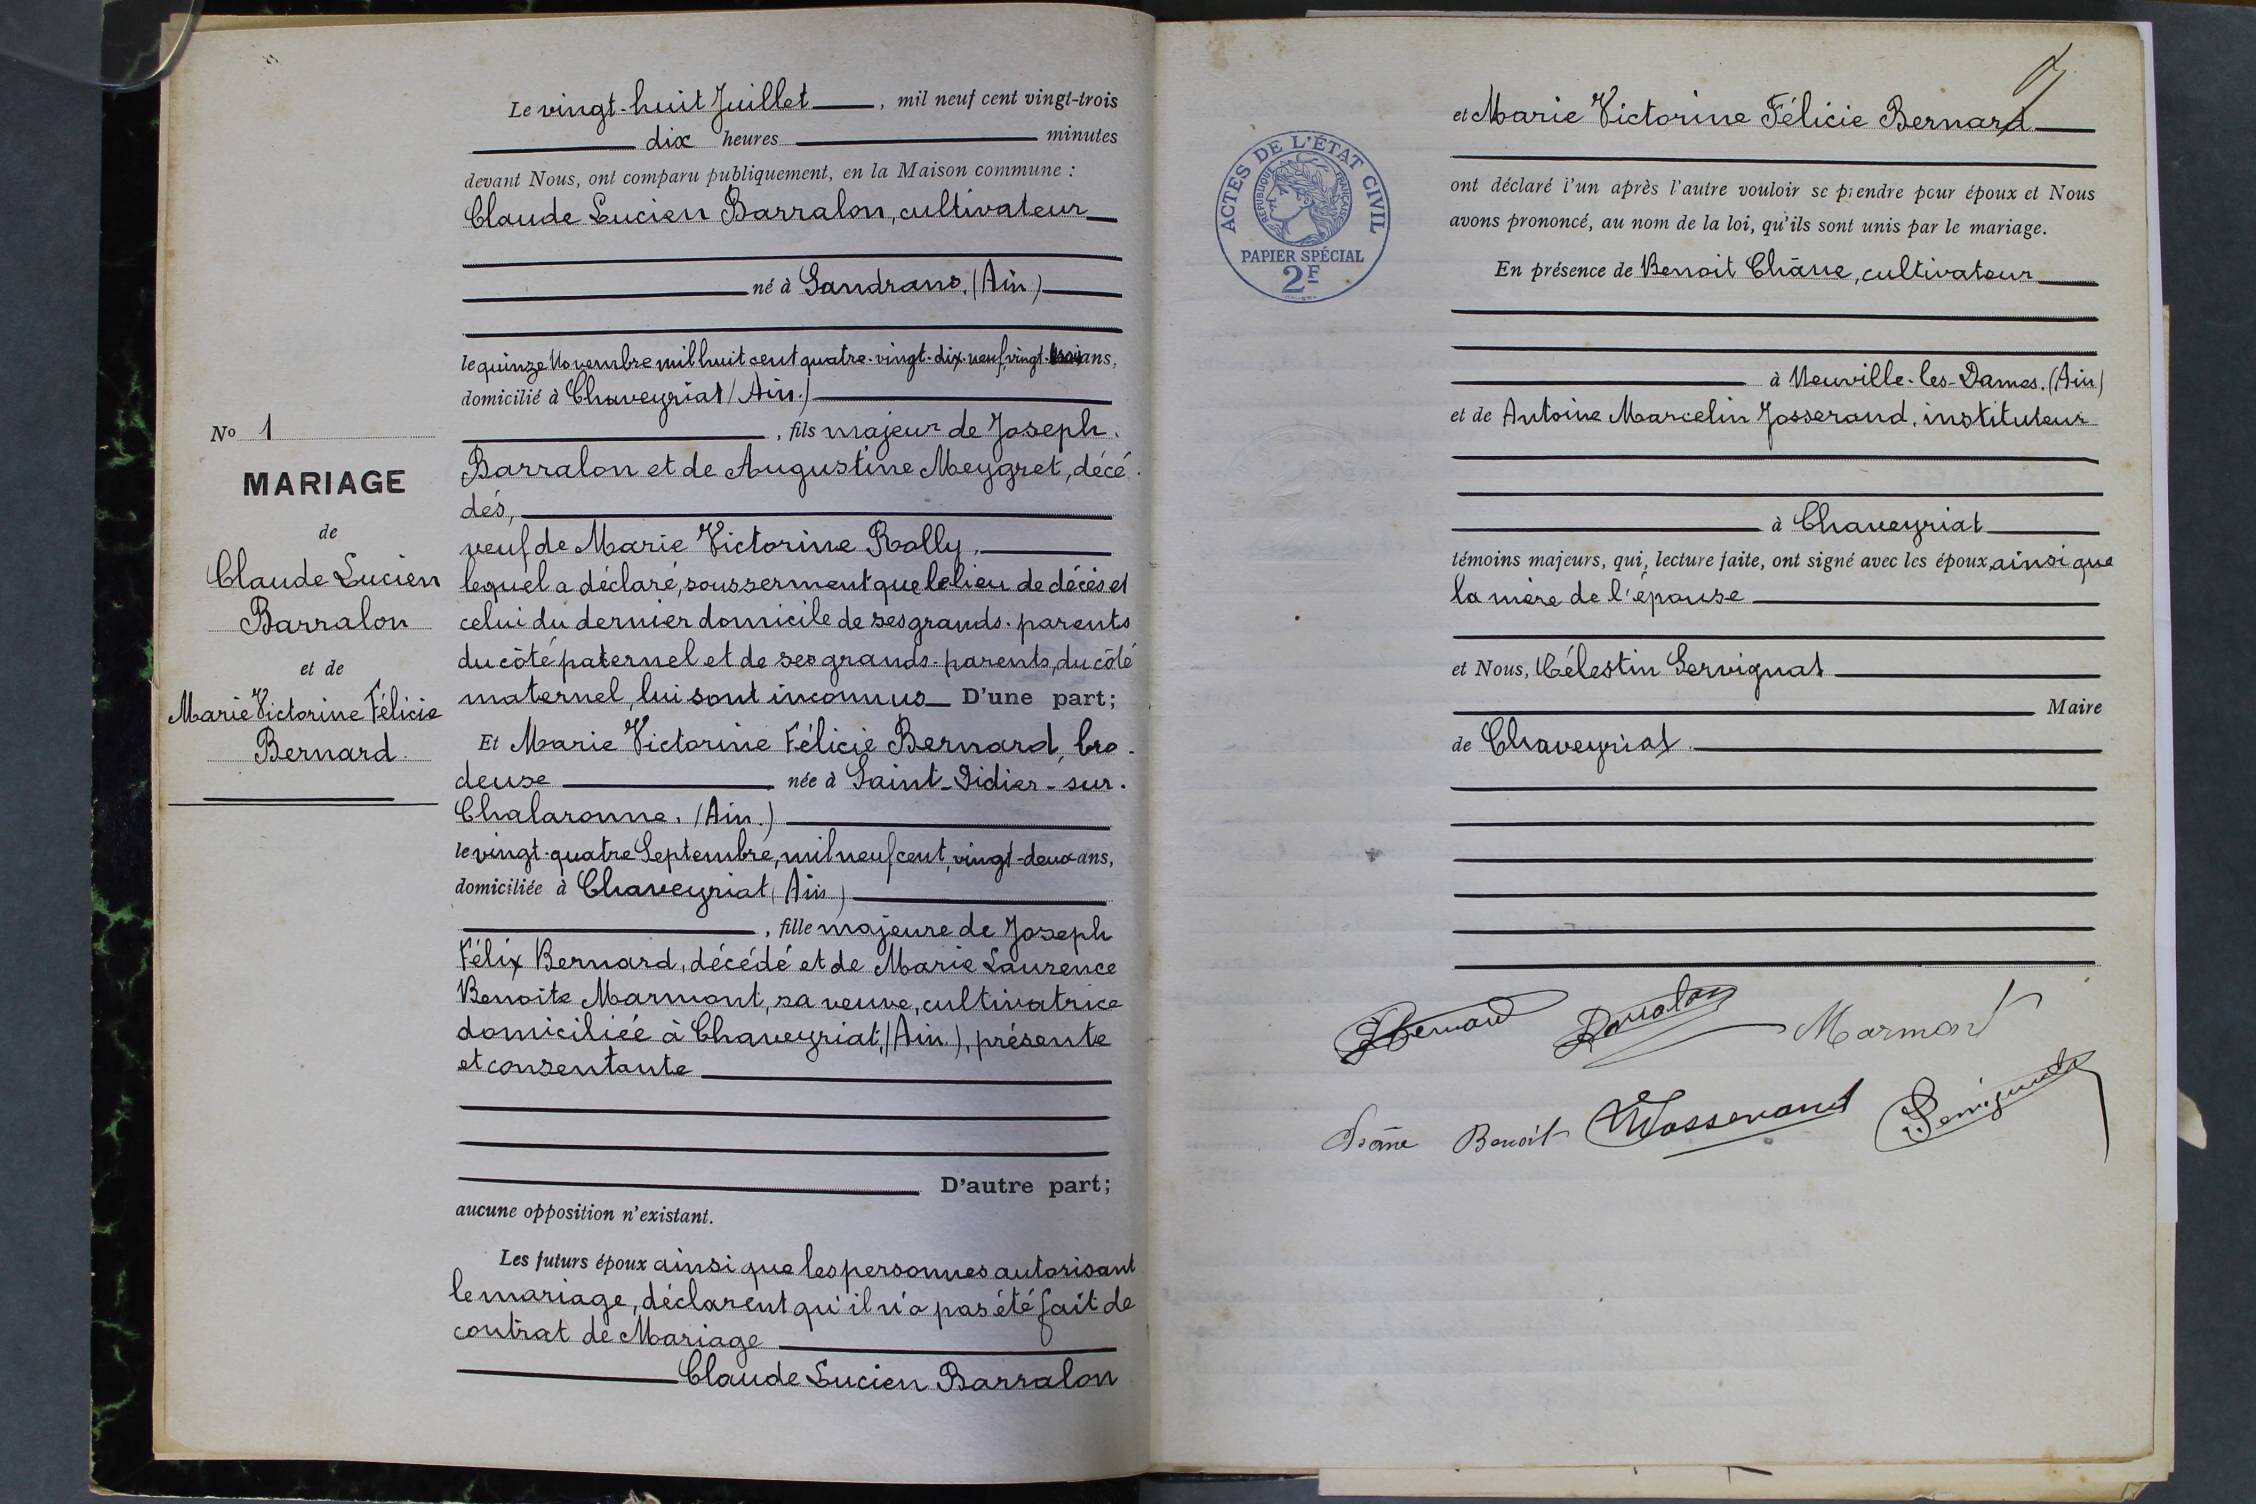 Le vingt-huit Juillet, mil neuf cent vingt-trois
dix heures minutes
devant Nous, ont comparu publiquement, en la Maison commune :
Claude Lucien Barralon, cultivateur
né à Sandrans, (Ain)
le quinze Novembre mil huit cent quatre-vingt-dix-neuf, vingt-trois ans,
domicilié à Chaveyriat (Ain.)
, fils majeur de Joseph
Barralon et de Augustine Meygret, décé-
dés,
veuf de Marie Victorine Rolly,
lequel a déclaré, sous serment que le lieu de décès et
celui du dernier domicile de ses grands-parents
du côté paternel et de ses grands-parents, du côté
maternel, lui sont inconnus D'une part;
Et Marie Victorine Félicie Bernard, bro-
deuse née à Saint-Didier-sur-
Chalaronne. (Ain.)
le vingt-quatre Septembre, mil neuf cent, vingt-deux ans,
domiciliée à Chaveyriat (Ain)
, fille majeure de Joseph
Félix Bernard, décédé et de Marie Laurence
Benoite Marmont, sa veuve, cultivatrice
domiciliée à Chaveyriat, (Ain.), présente
et consentante
D'autre part;
aucune opposition n'existant.
Les futurs époux ainsi que les personnes autorisant
le mariage, déclarent qu'il n'a pas été fait de
contrat de Mariage
Claude Lucien Barralon
No 1
MARIAGE
de
Claude Lucien
Barralon
et de
Marie Victorine Félicie
Bernard.
ACTES DE L'ÉTAT CIVIL
RÉPUBLIQUE FRANÇAISE
PAPIER SPÉCIAL
2F
et Marie Victorine Félicie Bernard
ont déclaré l'un après l'autre vouloir se prendre pour époux et Nous
avons prononcé, au nom de la loi, qu'ils sont unis par le mariage.
En présence de Benoit Châne, cultivateur
à Neuville-les-Dames. (Ain)
et de Antoine Marcelin Josserand, instituteur
à Chaveyriat
témoins majeurs, qui, lecture faite, ont signé avec les époux ainsi que
la mère de l'épouse
et Nous, Célestin Servignat
Maire
de Chaveyriat.
Bernard Barralon Marmont
Châne Benoit Josserand Servignat